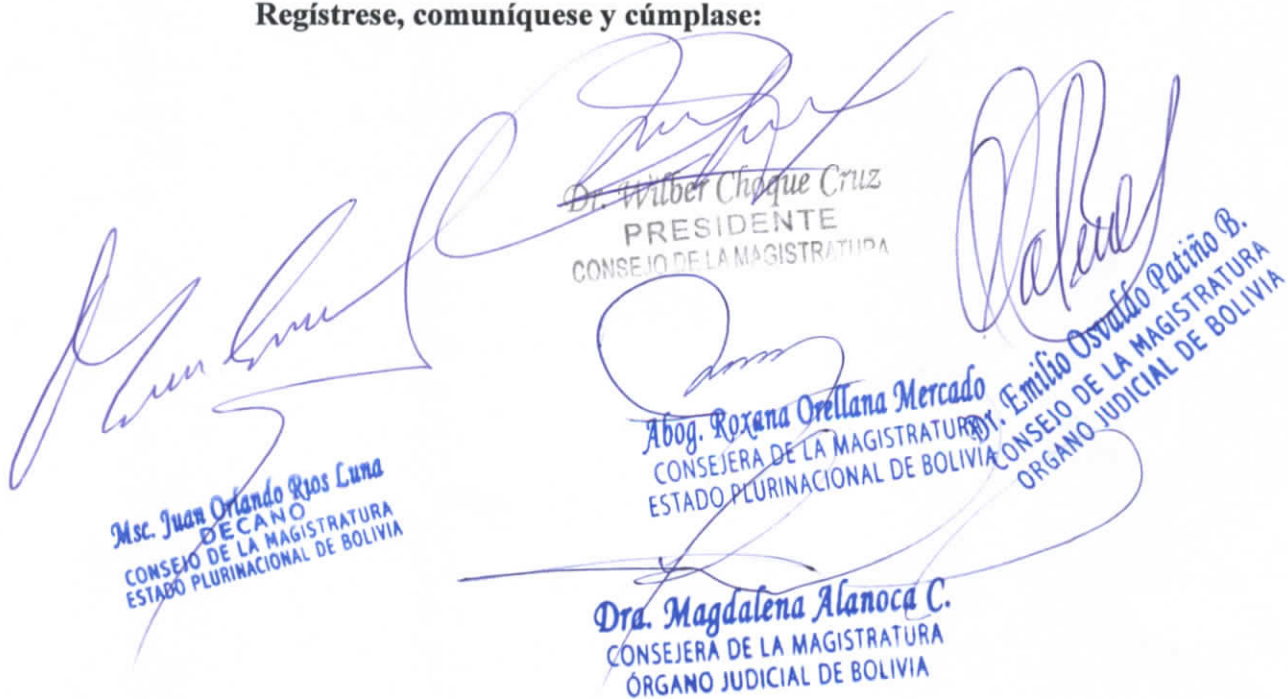 Regístrese, comuníquese y cúmplase:
Dr. Wilber Choque Cruz
PRESIDENTE
CONSEJO DE LA MAGISTRATURA
Dr. Emilio Osvaldo Patiño B.
CONSEJO DE LA MAGISTRATURA
ORGANO JUDICIAL DE BOLIVIA
Abog. Roxana Orellana Mercado
CONSEJERA DE LA MAGISTRATURA
ESTADO PLURINACIONAL DE BOLIVIA
Msc. Juan Orlando Rios Luna
DECANO
CONSEJO DE LA MAGISTRATURA
ESTADO PLURINACIONAL DE BOLIVIA
Dra. Magdalena Alanoca C.
CONSEJERA DE LA MAGISTRATURA
ÓRGANO JUDICIAL DE BOLIVIA